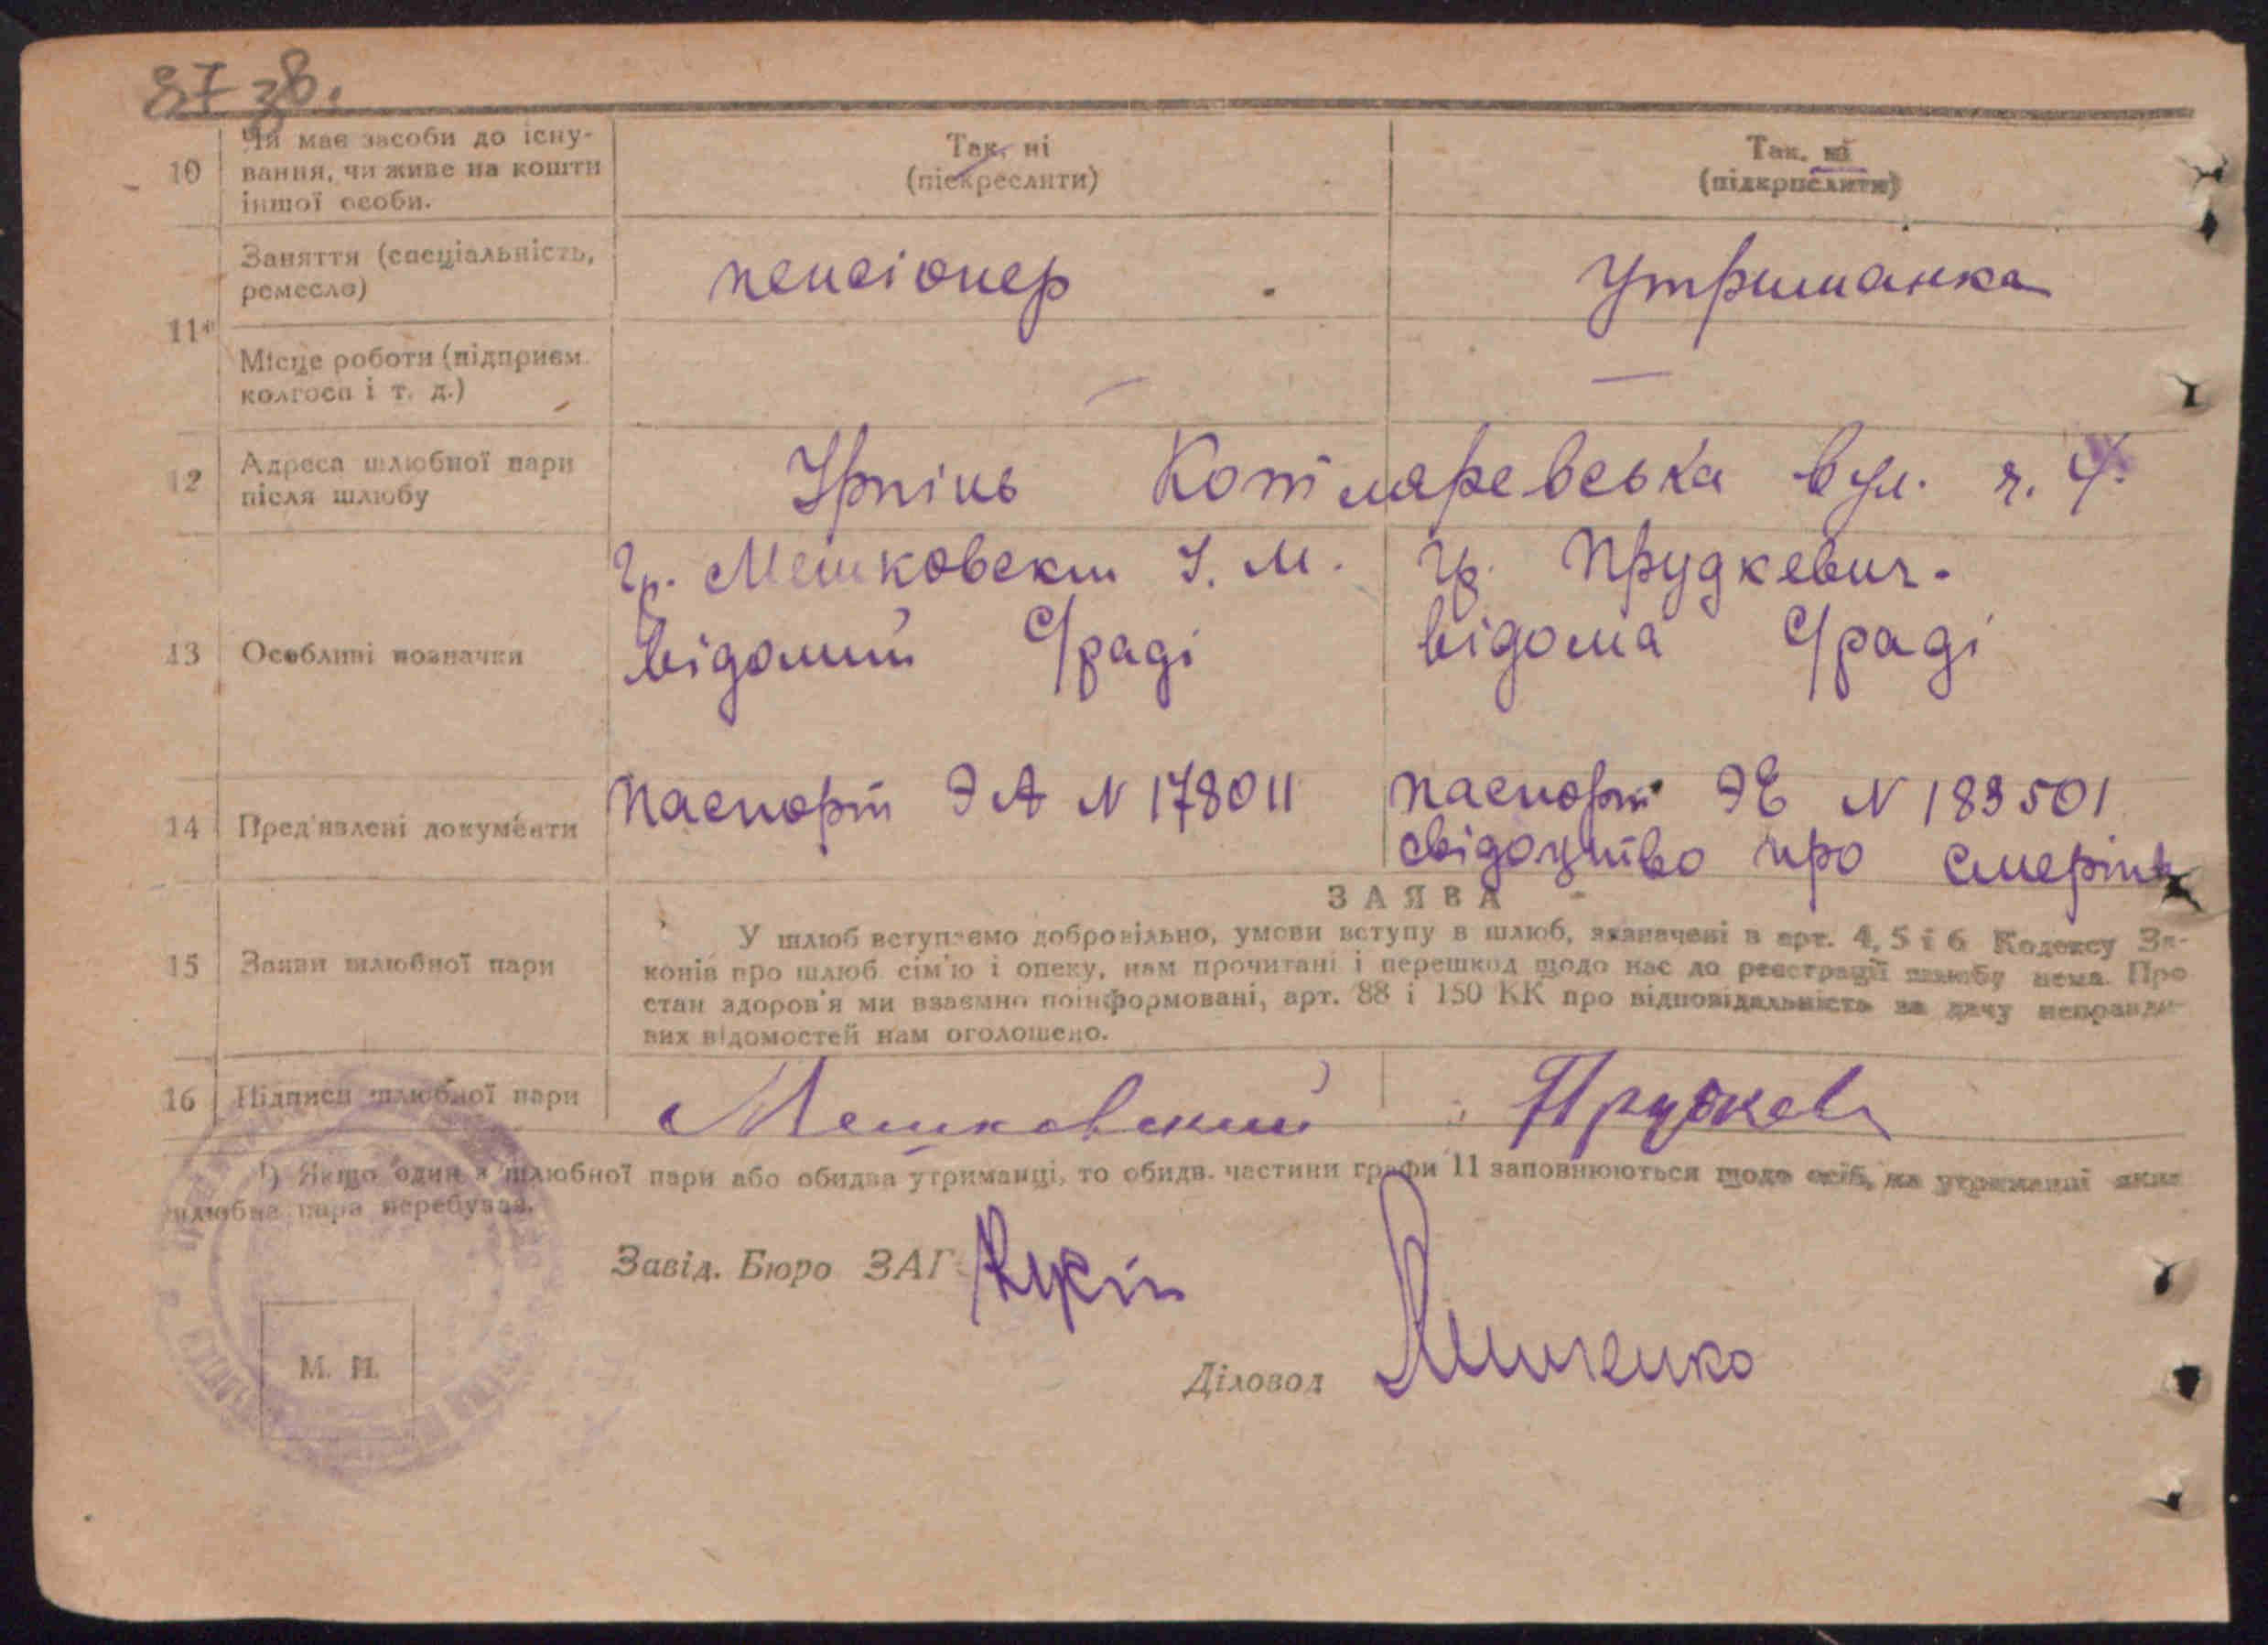 87 38.
10 Чи має засоби до існу-
вання, чи живе на кошти
іншої особи.
Так, ні
(підкреслити)
Так. ні
(підкреслити)
11¹⁾ Заняття (спеціальність,
ремесло)
пенсіонер
Утриманка
Місце роботи (підприєм.
колгосп і т. д.)
—
—
12 Адреса шлюбної пари
після шлюбу
Ірпінь Котляревська вул. ч. 4.
13 Особливі позначки
Гр. Мешковский І. М.
відомий с/раді
Гр. Прудкевич.
відома с/раді
14 Пред'явлені документи
паспорт ЭА N 178011
паспорт ЭЕ N 183501
свідоцтво про смерть
15 Заяви шлюбної пари
ЗАЯВА
У шлюб вступаємо добровільно, умови вступу в шлюб, зазначені в арт. 4, 5 і 6 Кодексу За-
конів про шлюб сім'ю і опеку, нам прочитані і перешкод щодо нас до реєстрації шлюбу нема. Про
стан здоров'я ми взаємно поінформовані, арт. 88 і 150 КК про відповідальність за дачу неправди-
вих відомостей нам оголошено.
16 Підписи шлюбної пари
Мешковский
Прудкев
¹) Якщо один з шлюбної пари або обидва утриманці, то обидв. частини графи 11 заповнюються щодо осіб, на утриманні яких
шлюбна пара перебуває.
Завід. Бюро ЗАГ
М. П.
Діловод